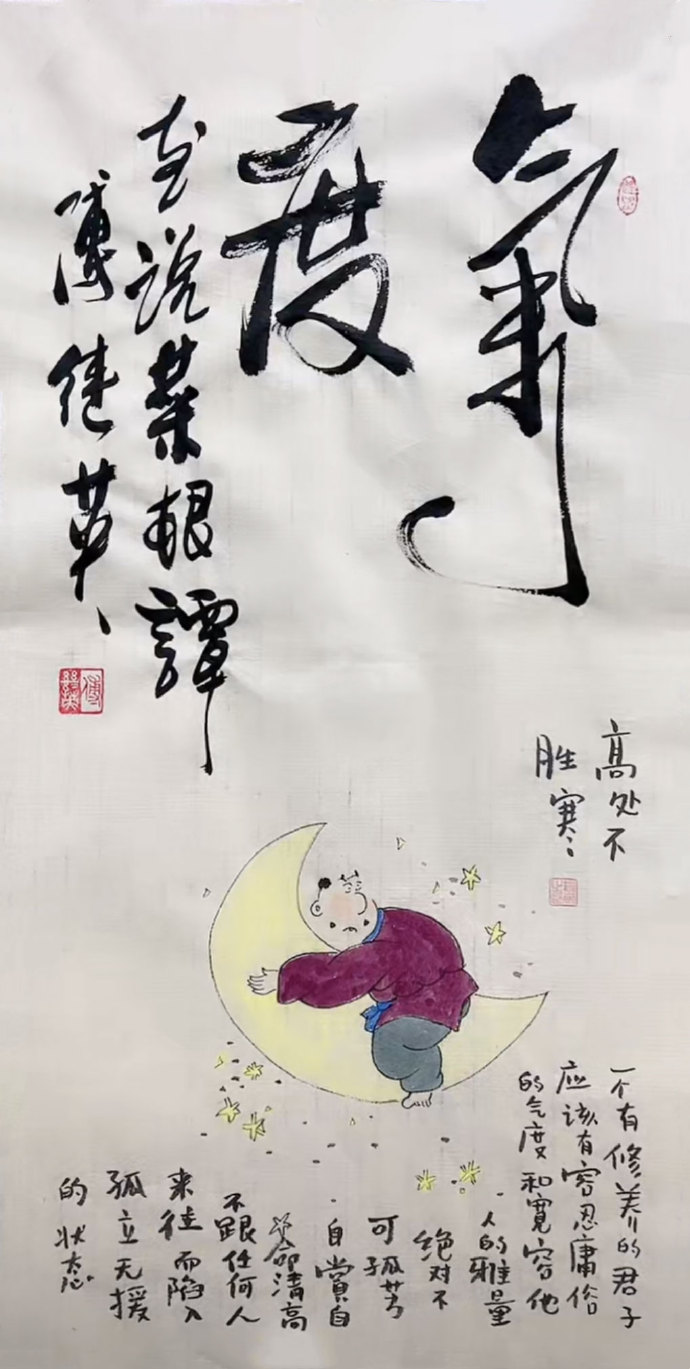 氣
度
画说菜根譚
傅继英
高处不
胜寒
一个有修养的君子
应该有容忍庸俗
的气度和寬容他
人的雅量
绝对不
可孤芳
自赏自
命清高
不跟任何人
来往而陷入
孤立无援
的状态